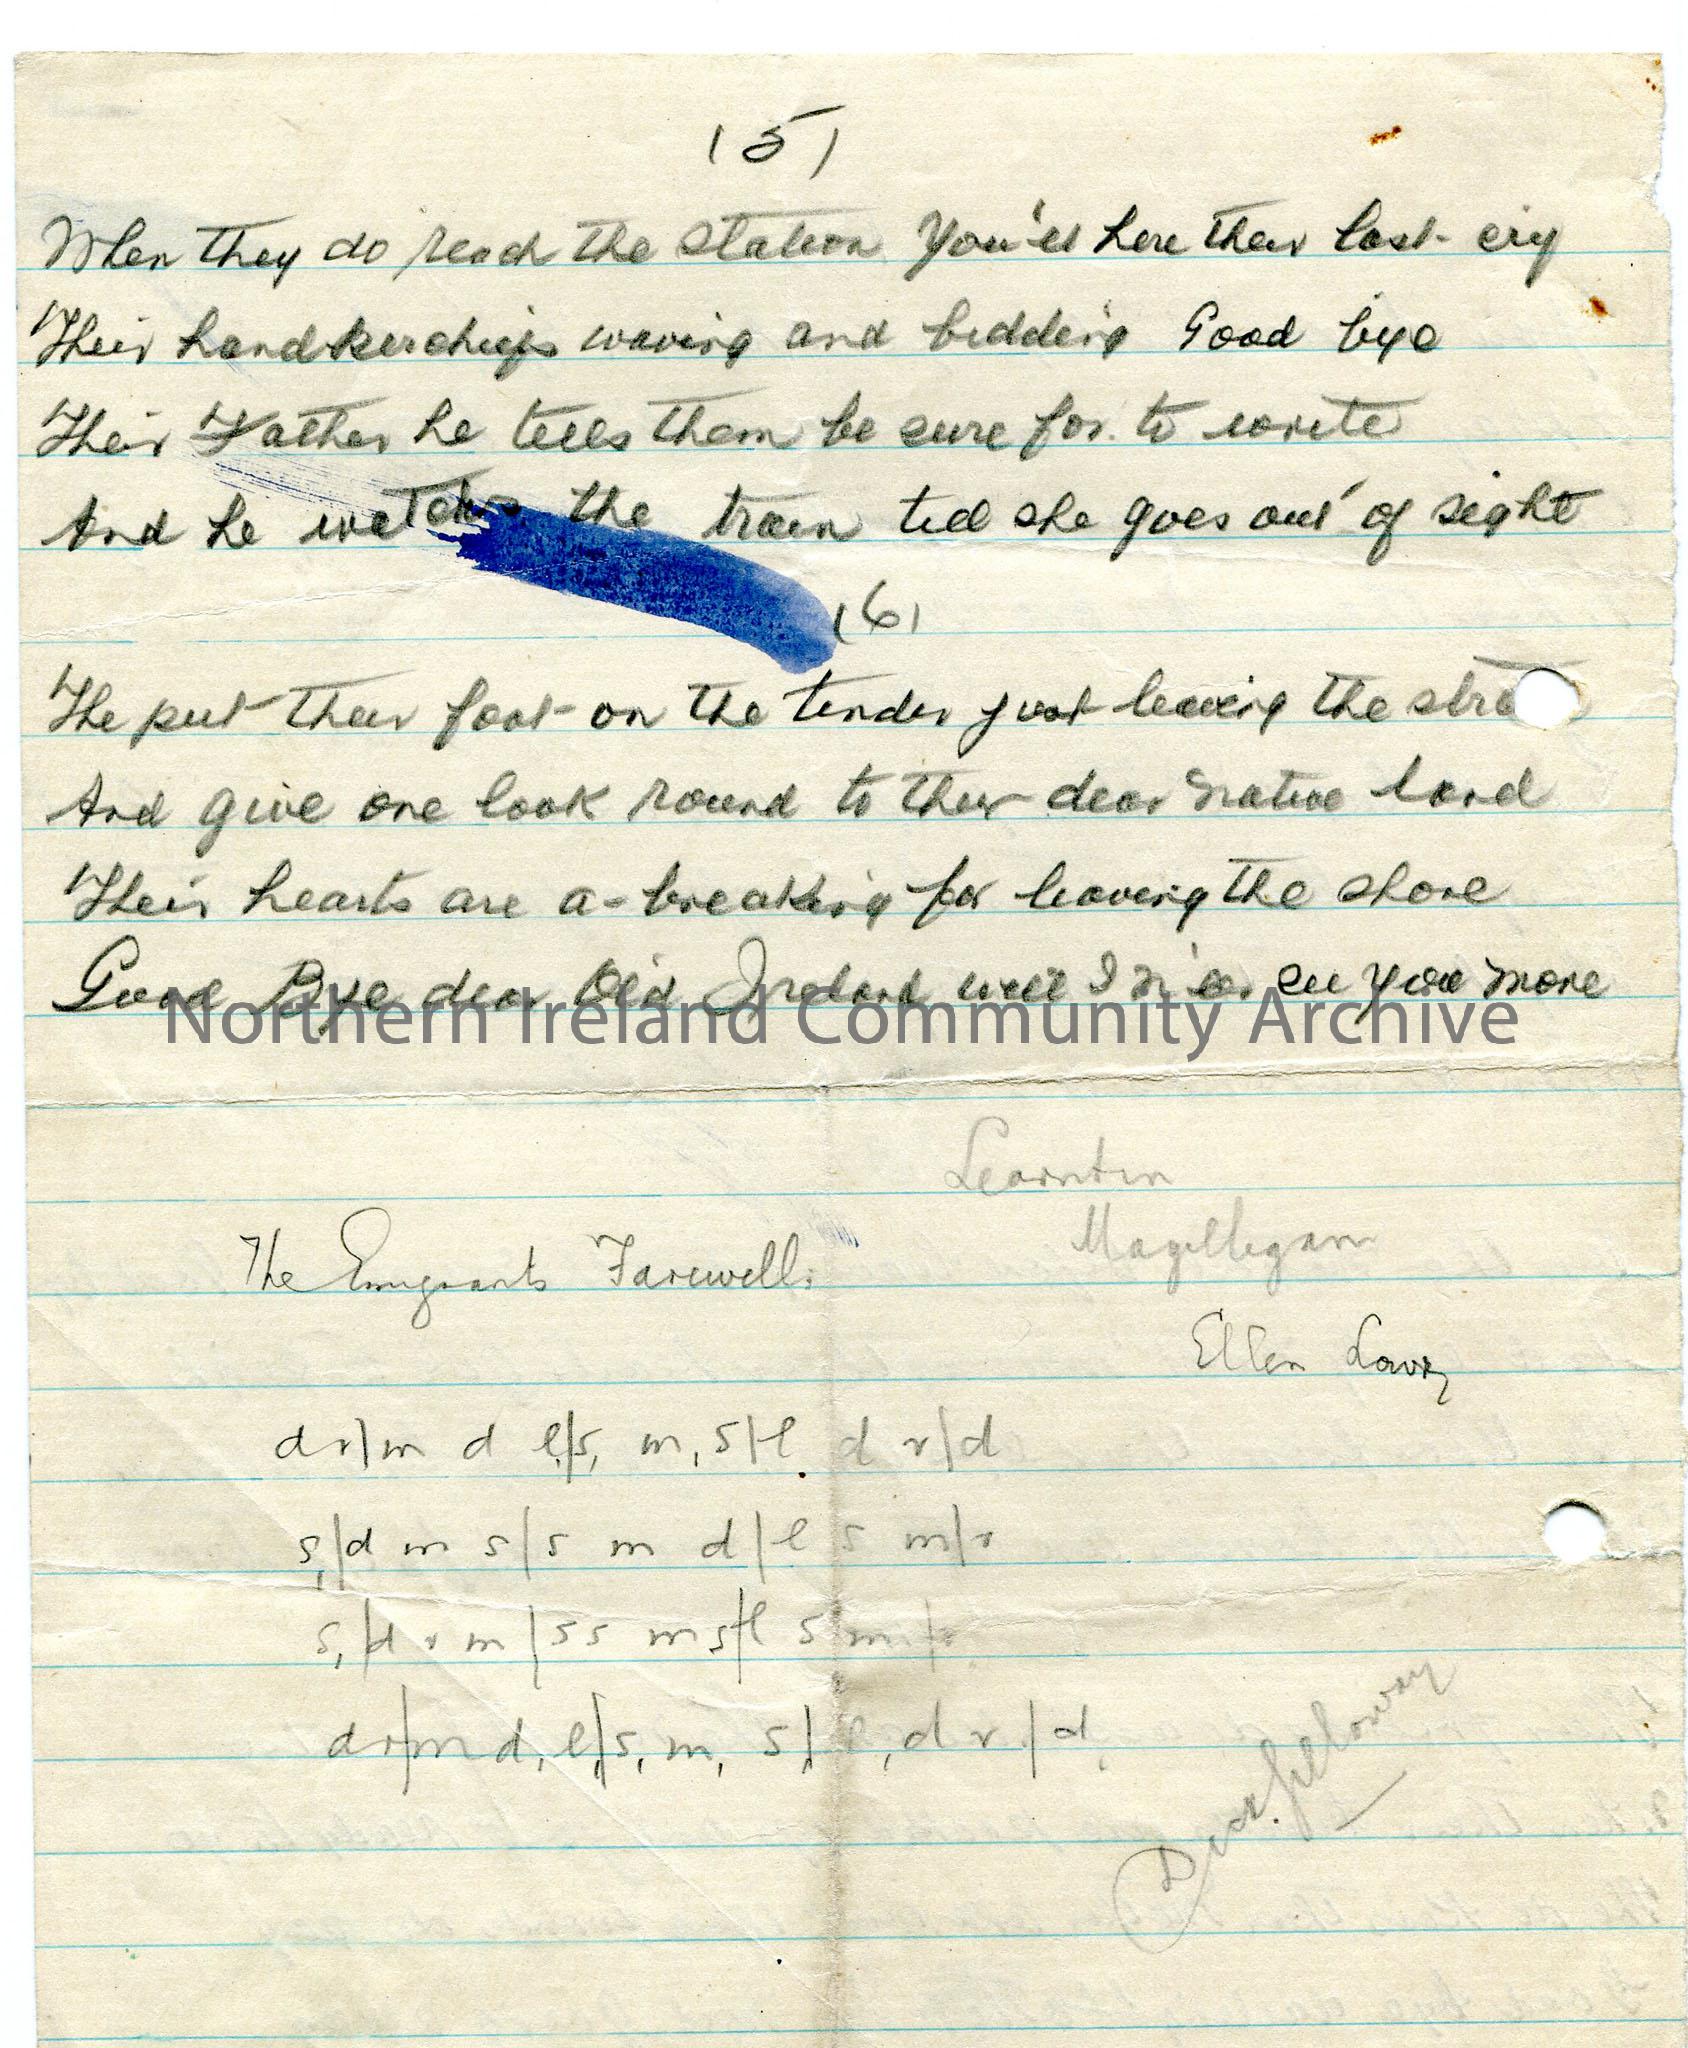 (5)
When they do reach the station you'll here their last cry
Their handkerchiefs waving and bidding Good bye
Their Father he tells them be sure for to write
And he watches the train till she goes out of sight
(6)
The put their foot on the tender just leaving the stra
And give one look round to their dear native land
Their hearts are a-breaking for leaving the shore
Good Bye dear Old Ireland will I ne'er see you more
Northern Ireland Community Archive
Learnt in
Magilligan
The Emigrants Farewell.
Ellen Lowry
d r|m d l,|s, m, s,|l, d r|d
s,|d m s|s m d|l s m|r
s,|d r m|s s m s|l s m r|r
d r|m d, l,|s, m, s,|l, d r|d,